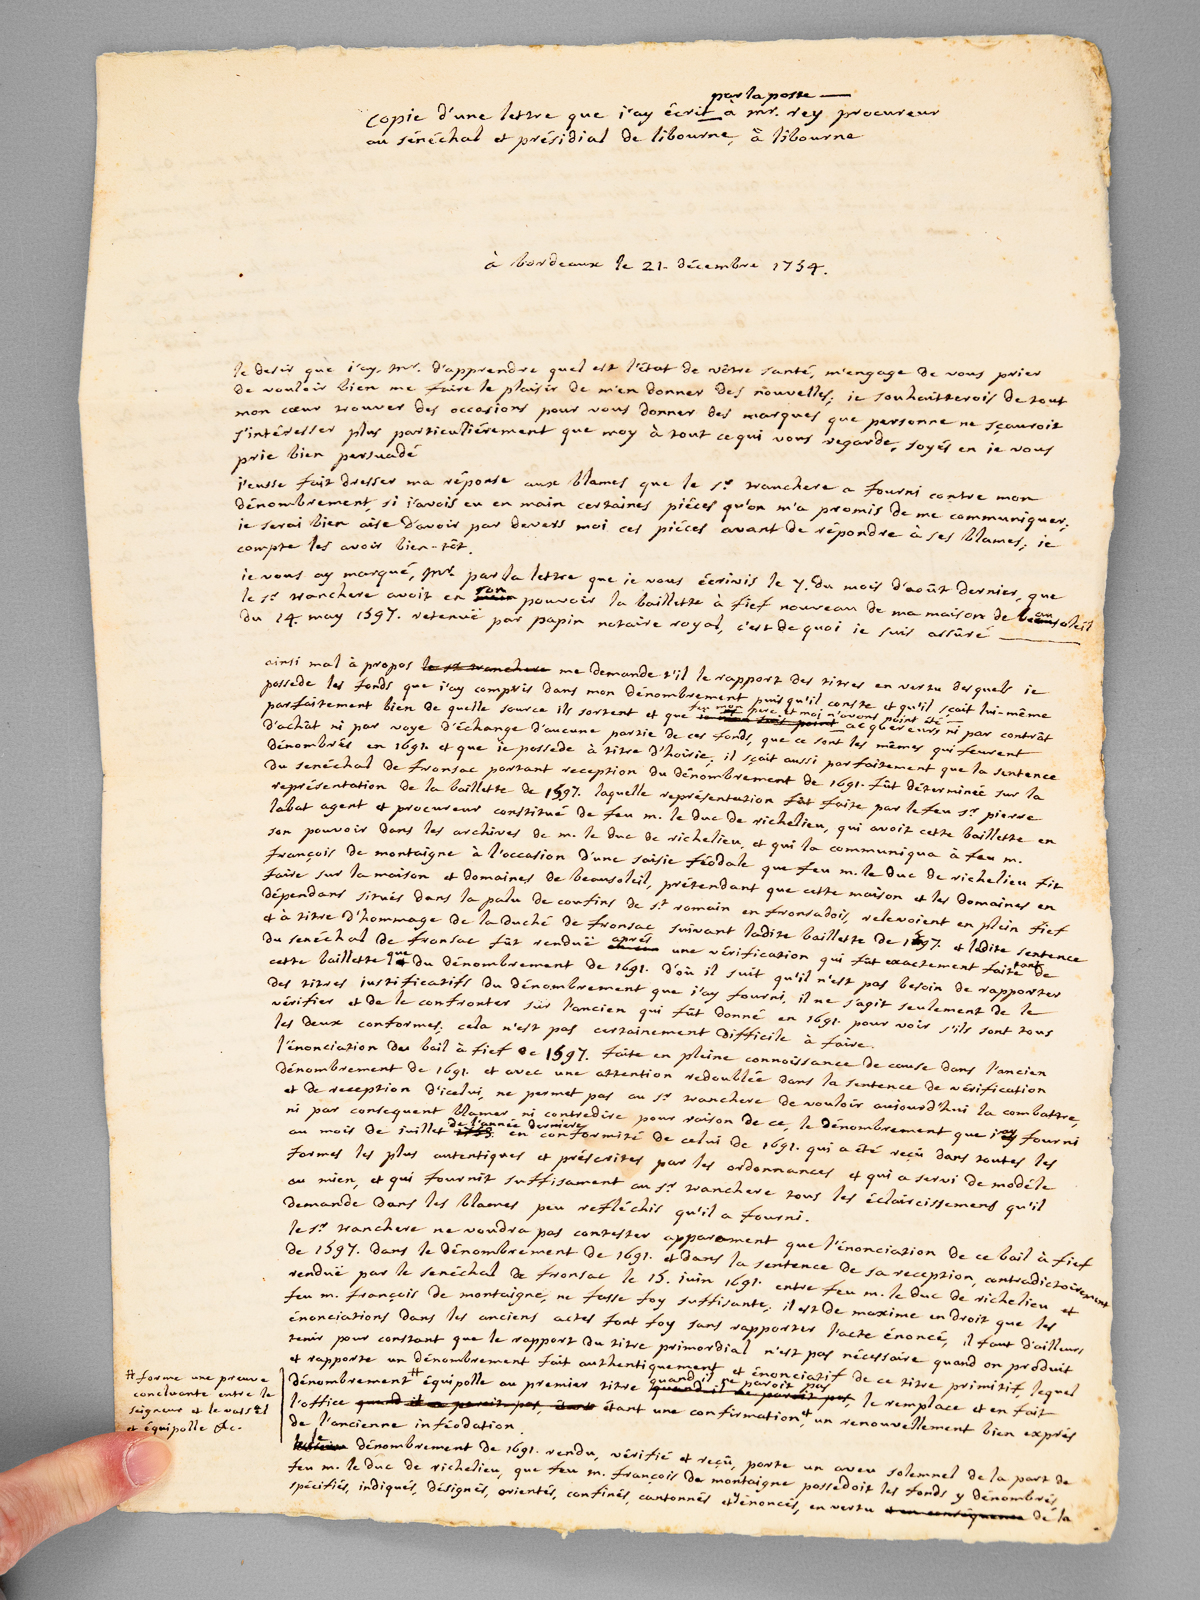 par la poste —
copie d'une lettre que j'ay écrit à mr. rey procureur
au sénéchal et présidial de libourne, à libourne
à bordeaux le 21. décembre 1754.
le desir que j'ay, mr. d'apprendre quel est l'état de vôtre santé, m'engage de vous prier
de vouloir bien me faire le plaisir de m'en donner des nouvelles; je souhaitterois de tout
mon cœur trouver des occasions pour vous donner des marques que personne ne sçauroit
s'intéresser plus particuliérement que moy à tout ce qui vous regarde, soyés en je vous
prie bien persuadé
j'eusse fait dresser ma réponse aux blames que le sr. tranchere a fourni contre mon
dénombrement, si j'avois eu en main certaines piéces qu'on m'a promis de me communiquer;
je serai bien aise d'avoir par devers moi ces piéces avant de répondre à ses blames; je
compte les avoir bien-tôt.
je vous ay marqué, mr. par la lettre que je vous écrivis le 7. du mois d'août dernier, que
le sr. tranchere avoit en son pouvoir la baillette à fief nouveau de ma maison de beausoleil
du 14. may 1597. retenuë par papin notaire royal, c'est de quoi je suis assûré
ainsi mal à propos le sr tranchere me demande t'il le rapport des titres en vertu desquels je
possede les fonds que j'ay compris dans mon dénombrement puis qu'il conste et qu'il sçait lui-même
parfaitement bien de quelle source ils sortent et que feu mon pere et moi n'avons point été acquereurs ni par contrât
d'achât ni par voye d'échange d'aucune partie de ces fonds, que ce sont les mêmes qui feurent
dénombrés en 1691. et que je possede à titre d'hoirie; il sçait aussi parfaitement que la sentence
du senéchal de fronsac portant reception du dénombrement de 1691. fût déterminée sur la
représentation de la baillette de 1597. laquelle représentation fût faite par le feu sr. pierre
labat agent et procureur constitué de feu m. le duc de richelieu, qui avoit cette baillette en
son pouvoir dans les archives de m. le duc de richelieu, et qui la communiqua à feu m.
françois de montaigne à l'occasion d'une saisie féodale que feu m. le duc de richelieu fit
faire sur la maison et domaines de beausoleil, prétendant que cette maison et les domaines en
dépendans situés dans la palu de confins de st. romain en fronsadois, relevoient en plein fief
et à titre d'hommage de la duché de fronsac suivant ladite baillette de 1597. et ladite sentence
du senéchal de fronsac fût renduë aprés une vérification qui fût exactement faite tant de
cette baillette que du dénombrement de 1691. d'où il suit qu'il n'est pas besoin de rapporter
des titres justificatifs du dénombrement que j'ay fourni, il ne s'agit seulement de le
vérifier et de le confronter sur l'ancien qui fût donné en 1691. pour voir s'ils sont tous
les deux conformes; cela n'est pas certainement difficile à faire.
l'énonciation du bail à fief de 1597. faite en pleine connoissance de cause dans l'ancien
dénombrement de 1691. et avec une attention redoublée dans la sentence de vérification
et de reception d'icelui, ne permet pas au sr. tranchere de vouloir aujourd'hui la combattre,
ni par consequent blamer, ni contredire pour raison de ce, le dénombrement que j'ay fourni
au mois de juillet de l'année derniere en conformité de celui de 1691. qui a été reçû dans toutes les
formes les plus autentiques et préscrites par les ordonnances et qui a servi de modéle
au mien, et qui fournit suffisament au sr. tranchere tous les éclaircissemens qu'il
demande dans les blames peu refléchis qu'il a fourni.
le sr. tranchere ne voudra pas contester apparament que l'énonciation de ce bail à fief
de 1597. dans le dénombrement de 1691. et dans la sentence de sa reception, contradictoirement
renduë par le senéchal de fronsac le 15. juin 1691. entre feu m. le duc de richelieu et
feu m. françois de montaigne, ne fasse foy suffisante; il est de maxime en droit que les
énonciations dans les anciens actes font foy sans rapporter l'acte énoncé, il faut d'ailleurs
tenir pour constant que le rapport du titre primordial n'est pas nécessaire quand on produit
et rapporte un dénombrement fait authentiquement et énonciatif de ce titre primitif, lequel
dénombrement # équipolle au premier titre quand il ne paroit pas, le remplace et en fait
l'office étant une confirmation et un renouvellement bien exprés
de l'ancienne inféodation.
# forme une preuve
concluante entre le
seigneur et le vassal
et équipolle &c.
le dénombrement de 1691. rendu, vérifié et reçû, porte un aveu solemnel de la part de
feu m. le duc de richelieu, que feu m. françois de montaigne possedoit les fonds y dénombrés,
spécifiés, indiqués, désignés, orientés, confinés, cantonnés et y énoncés, en vertu et en conséquence de la